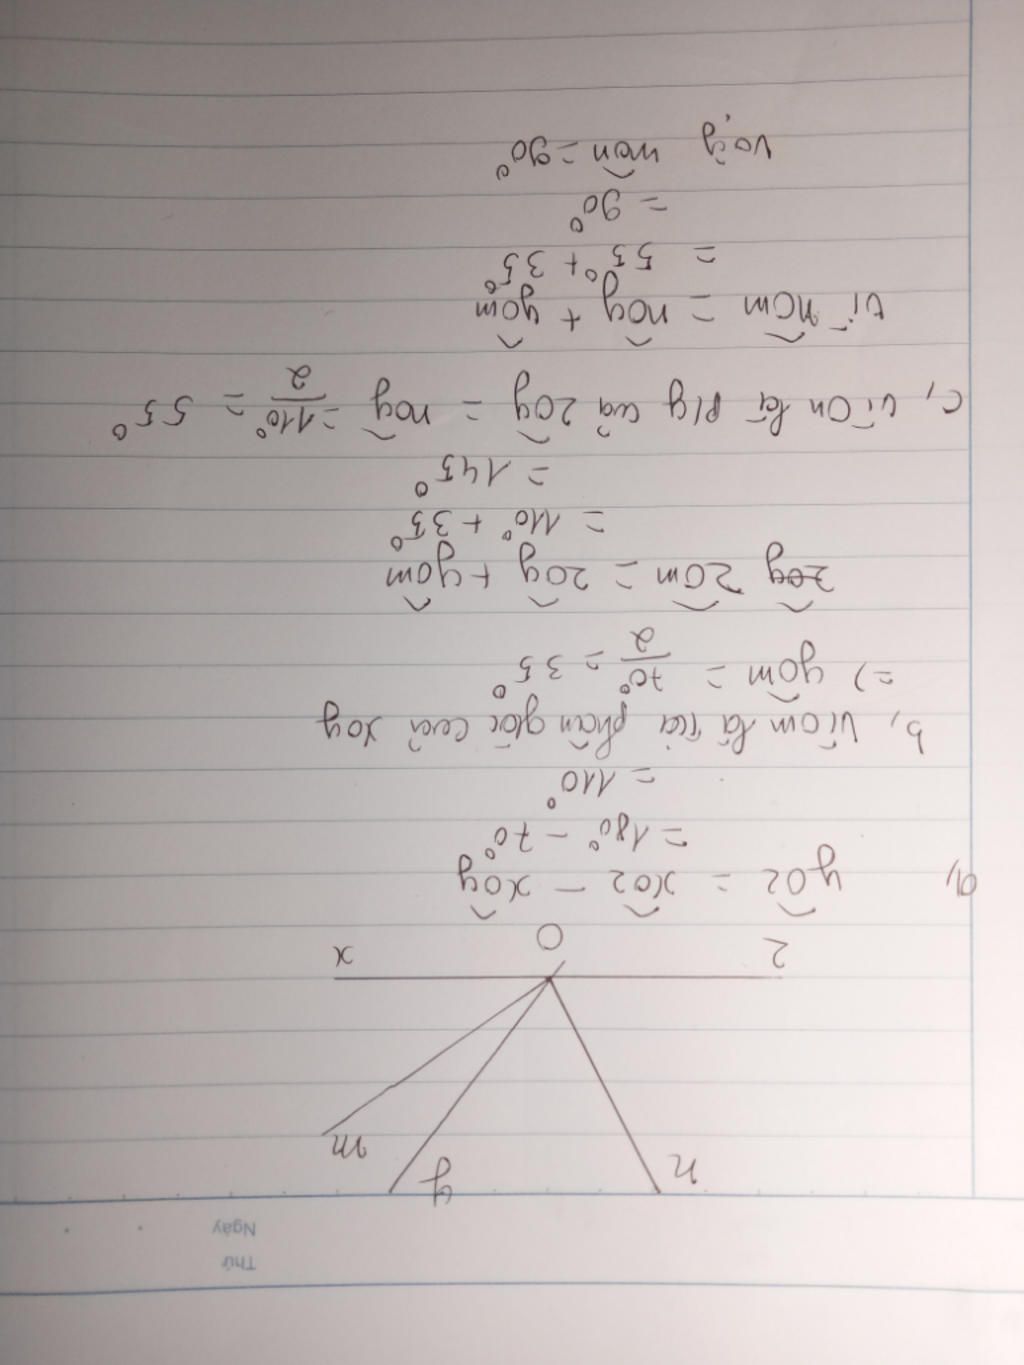 Thứ
Ngày
n y m
z O x
a, yOz = xOz - xOy
= 180° - 70°
= 110°
b, Vì Om là tia phân giác của xOy
=> yOm = 70°/2 = 35°
zOy zOm = zOy + yOm
= 110° + 35°
= 145°
c, Vì On là p/g của zOy = nOy = 110°/2 = 55°
Vì nOm = nOy + yOm
= 55° + 35°
= 90°
Vậy mOn = 90°